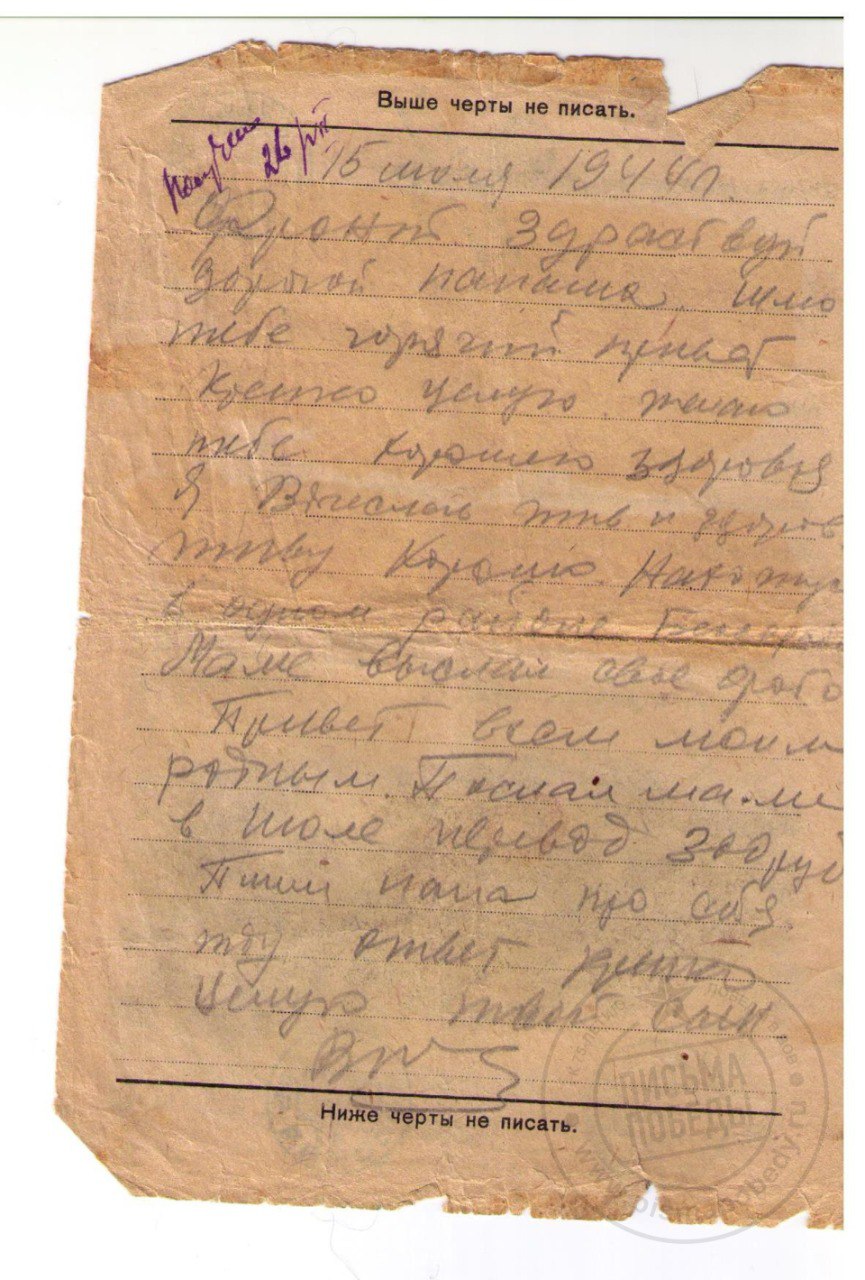 Выше черты не писать.
Получено
26/VII
15 июля 1944 г.
Фронт. Здравствуй
дорогой папаша. Шлю
тебе горячий привет
Крепко целую. желаю
тебе хорошего здоровья
Я Вячеслав жив и здоров
живу хорошо. Нахожус
в одном районе
Маме выслал свое фото
Привет всем моим
родным. Послал маме
в июле перевод 300 руб
Пиши папа про себя.
жду ответ крепко
целую твой сын
Ниже черты не писать.
ПИСЬМА
ПОБЕДЫ